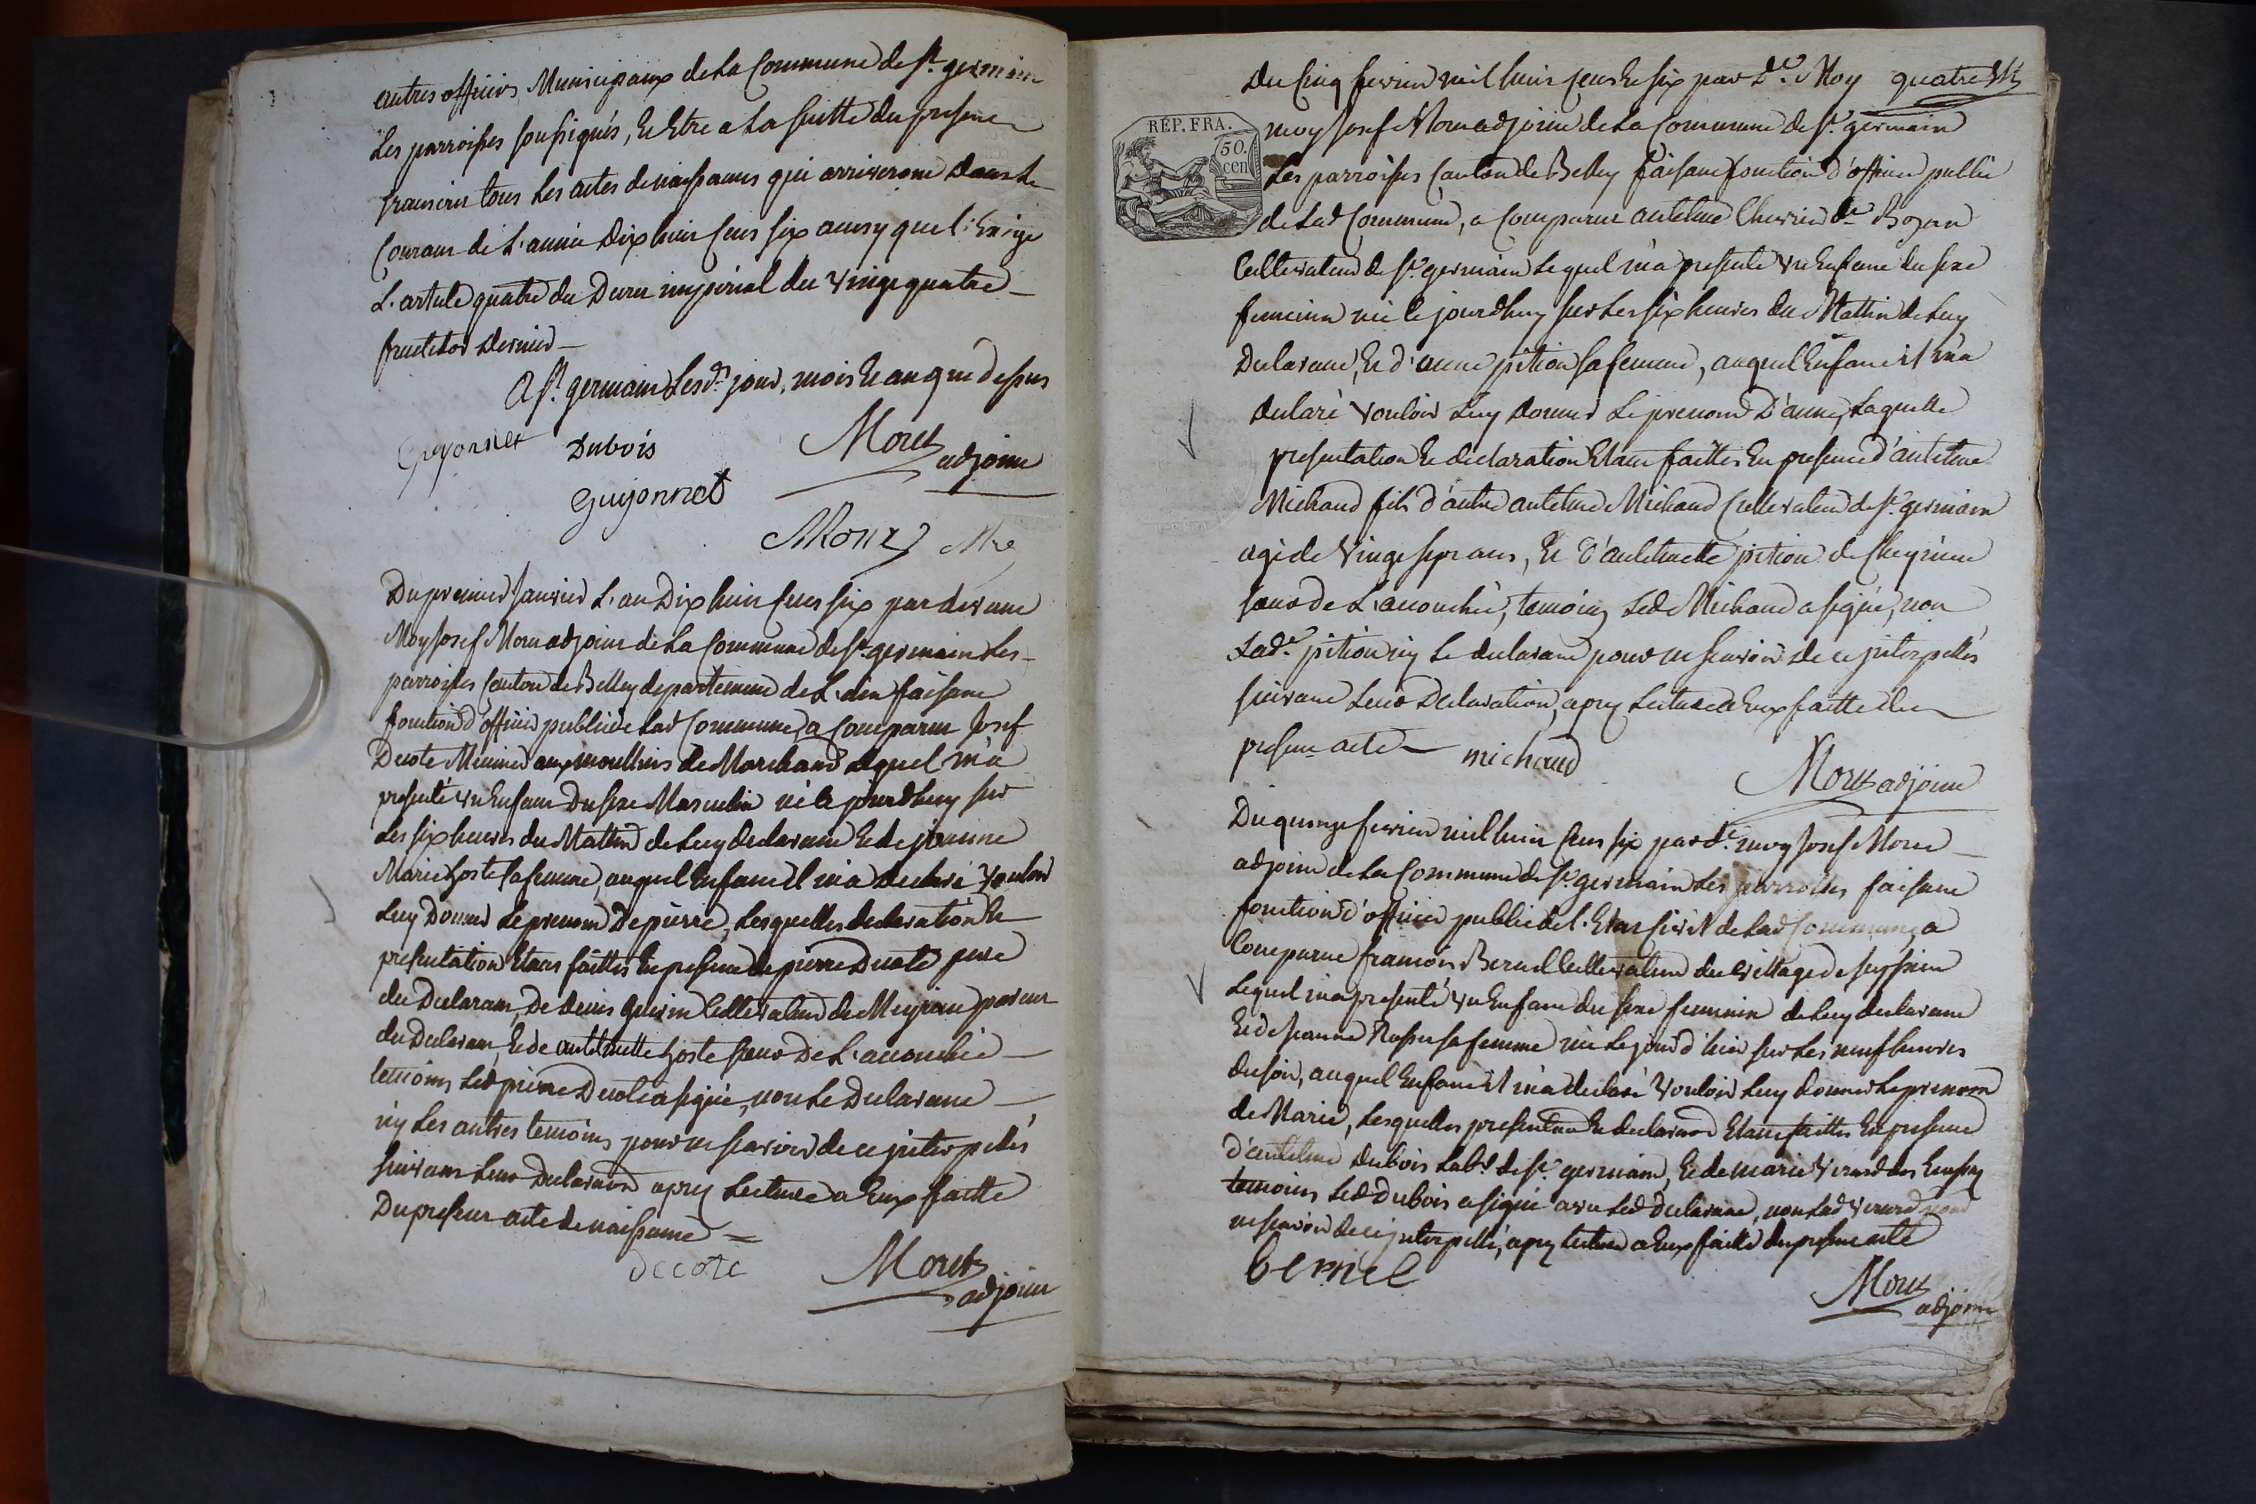 autres officiers Municipaux de la Commune de St. germain
Les parroisses soussignés, Et Etre a La suitte du present
transcrit tous Les actes de naissances qui arriveront dans le
Courant de L'année Dix huit Cens six ainsy que l'Exige
L'article quatre du Decret impérial du vingt quatre
fructidor dernier
a St. germain Lesd. jour, mois Et an que dessus
guyonnet Dubois Moret adjoint
guyonnet
Du premier Janvier L'an Dix huit Cens six par devant
Moy Josef Moret adjoint de La Commune de St. germain Les
parroisses Canton de Belley departement de L'ain faisant
fonction d'officier public de Lad Commune, a Comparu Josef
Decote Meunier aux moullins de Marchand Lequel m'a
presenté un Enfant du sexe Masculin né le jourdhuy sur
Les six heures du Mattin de Luy declarant Et de jeanne
Marie hoste sa femme, auquel Enfant il m'a declaré vouloir
Luy Donner Le prenom De pierre, Lesquelles declaration Et
presentation Etans faittes En presence de pierre Decote pere
du Declarant, De denis Cultivateur de Meyrieu parent
du Declarant, Et de antelmette hoste sœur De L'acouchée
temoins Led pierre Decote a signé, non Le Declarant
n'y Les autres temoins pour ne scavoir de ce interpellés
suivant Leur Declaration apres Lecture a Eux faitte
Du present acte de naissance
decote Moret adjoint
Du Cinq fevrier mil huit Cens Et six par De. Moy quatre
REP. FRA.
50.
cen
moy Josef Moret adjoint de La Commune de St. germain
Les parroisses Canton de Belley faisant fonction d'officier public
de Lad Commune, a Comparu antelme Chevrier dt. Bozon
Cultivateur de St. germain Lequel m'a presenté un Enfant du sexe
feminin né le jourdhuy sur Les six heures du Mattin de Luy
Declarant, Et d'anne pition sa femme, auquel Enfant il m'a
declaré vouloir Luy donner Le prenom D'anne, Laquelle
presentation Et declaration Etant faittes En presence d'antelme
Michaud fils d'autre antelme Michaud Cultivateur de St. germain
agé de vingt sept ans, Et d'antelmette pition de
sœur de L'acouchée, temoins Led Michaud a signé, non
Lade. pition n'y Le declarant pour ne scavoir de ce interpellés
suivant Leur Declaration, apres Lecture a Eux faitte du
present acte michaud
Moret adjoint
Du quinze fevrier mil huit Cens six par d. moy Josef Moret
adjoint de La Commune de St. germain Les parroisses faisant
fonction d'officier public de L'Etat Civil de Lad Commune, a
Comparu francois Bernel Cultivateur du village de
Lequel m'a presenté un Enfant du sexe feminin de Luy declarant
Et de jeanne sa femme né Le jour d'hier sur Les neuf heures
du soir, auquel Enfant il m'a declaré vouloir Luy donner Le prenom
de Marie, Lesquelles presentation Et declaration Etant faittes En presence
d'antelme dubois Labr. de St. germain, Et de marie
temoins Led Dubois a signé avec Led declarant, non Lad pour
ne scavoir de ce interpellé, apres Lecture a Eux faitte du present acte
bernel
Moret adjoint